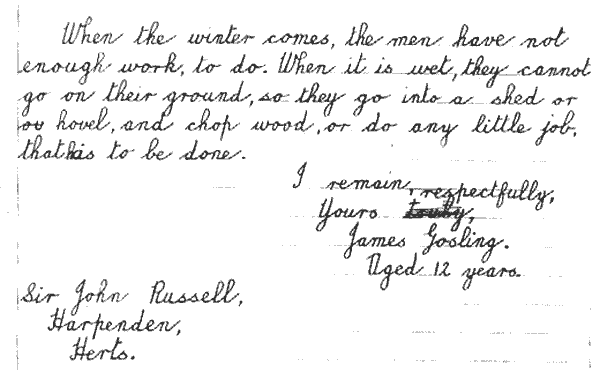 When the winter comes, the men have not
enough work, to do. When it is wet, they cannot
go on their ground, so they go into a shed or
or hovel, and chop wood, or do any little job,
that has to be done.
I remain, respectfully,
Yours truly,
James Gosling.
Aged 12 years.
Sir John Russell,
Harpenden,
Herts.